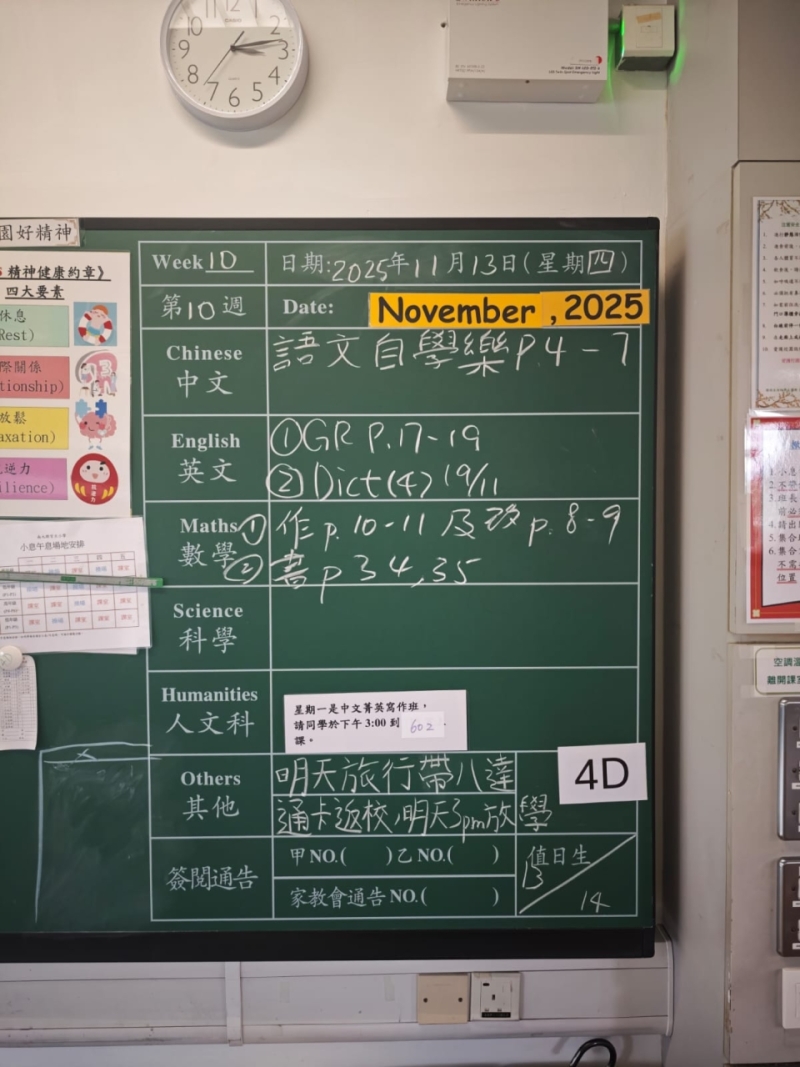 10 2 3 4 5 6 7 8 9
園好精神
精神健康約章》
四大要素
休息
Rest)
際關係
tionship)
放鬆
axation)
逆力
ilience)
小息午息場地安排
Week 10
日期:2025年11月13日(星期四)
第10週
Date: November , 2025
Chinese
中文
語文自學樂P4-7
English
英文
①GR P.17-19
②Dict(4) 19/11
Maths
數學
①作p.10-11及改p.8-9
②書p34,35
Science
科學
Humanities
人文科
星期一是中文菁英寫作班，
請同學於下午3:00到 602
課。
Others
其他
明天旅行帶八達
通卡返校,明天3pm放學
4D
簽閱通告
甲NO.( )乙NO.( )
家教會通告NO.( )
值日生
13
14
空調溫
離開課室